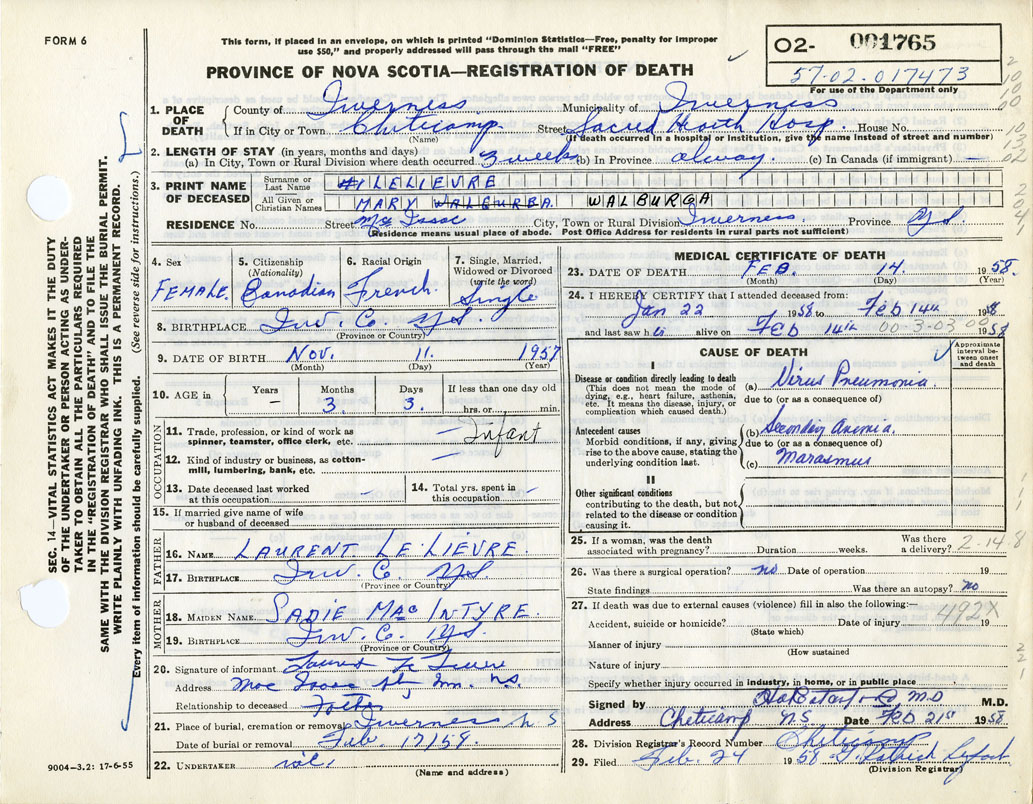 FORM 6
This form, if placed in an envelope, on which is printed "Dominion Statistics—Free, penalty for improper
use $50," and properly addressed will pass through the mail "FREE"
O2- 001765
57-02-017473
For use of the Department only
PROVINCE OF NOVA SCOTIA—REGISTRATION OF DEATH
SEC. 14—VITAL STATISTICS ACT MAKES IT THE DUTY
OF THE UNDERTAKER OR PERSON ACTING AS UNDER-
TAKER TO OBTAIN ALL THE PARTICULARS REQUIRED
IN THE "REGISTRATION OF DEATH" AND TO FILE THE
SAME WITH THE DIVISION REGISTRAR WHO SHALL ISSUE THE BURIAL PERMIT.
WRITE PLAINLY WITH UNFADING INK. THIS IS A PERMANENT RECORD.
Every item of information should be carefully supplied. (See reverse side for instructions.)
1. PLACE OF DEATH County of Inverness Municipality of Inverness
If in City or Town Cheticamp Street Sacred Heart Hosp House No.
(Name) (If death occurred in a hospital or institution, give the name instead of street and number)
2. LENGTH OF STAY (in years, months and days)
(a) In City, Town or Rural Division where death occurred 3 weeks (b) In Province alway. (c) In Canada (if immigrant) —
3. PRINT NAME OF DECEASED Surname or Last Name LELIEVRE
All Given or Christian Names MARY WALBURGA
RESIDENCE No. Street Mac Isaac City, Town or Rural Division Inverness. Province NS.
(Residence means usual place of abode. Post Office Address for residents in rural parts not sufficient)
4. Sex FEMALE.
5. Citizenship (Nationality) Canadian
6. Racial Origin French.
7. Single, Married, Widowed or Divorced (write the word) Single
8. BIRTHPLACE Inv. Co. NS.
(Province or Country)
9. DATE OF BIRTH Nov. 11. 1957
(Month) (Day) (Year)
10. AGE in Years — Months 3. Days 3. If less than one day old hrs. or min.
OCCUPATION
11. Trade, profession, or kind of work as
spinner, teamster, office clerk, etc. — Infant
12. Kind of industry or business, as cotton-
mill, lumbering, bank, etc. —
13. Date deceased last worked
at this occupation —
14. Total yrs. spent in
this occupation —
15. If married give name of wife
or husband of deceased
FATHER
16. NAME LAURENT LE LIEVRE.
17. BIRTHPLACE Inv. C. NS.
(Province or Country)
MOTHER
18. MAIDEN NAME SADIE MAC INTYRE.
19. BIRTHPLACE Inv. C. NS.
(Province or Country)
20. Signature of informant Laurent Le Lievre
Address Mac Isaac St Inv. N.S.
Relationship to deceased Father
21. Place of burial, cremation or removal Inverness N S
Date of burial or removal Feb. 17/58.
22. UNDERTAKER
(Name and address)
9004—3.2: 17-6-55
MEDICAL CERTIFICATE OF DEATH
23. DATE OF DEATH FEB. 14. 1958.
(Month) (Day) (Year)
24. I HEREBY CERTIFY that I attended deceased from:
Jan 22 1958 to Feb 14th 1958
and last saw her alive on Feb 14th 1958
CAUSE OF DEATH
Approximate interval between onset and death
I
Disease or condition directly leading to death
(This does not mean the mode of
dying, e.g., heart failure, asthenia,
etc. It means the disease, injury, or
complication which caused death.)
(a) Virus Pneumonia
due to (or as a consequence of)
Antecedent causes
Morbid conditions, if any, giving
rise to the above cause, stating the
underlying condition last.
(b) Secondary Anemia.
due to (or as a consequence of)
(c) Marasmus
II
Other significant conditions
contributing to the death, but not
related to the disease or condition
causing it.
25. If a woman, was the death
associated with pregnancy? Duration weeks. Was there
a delivery? 2-14 8
26. Was there a surgical operation? no Date of operation 19
State findings Was there an autopsy? no
27. If death was due to external causes (violence) fill in also the following:—
492X
Accident, suicide or homicide? Date of injury 19
(State which)
Manner of injury
(How sustained
Nature of injury
Specify whether injury occurred in industry, in home, or in public place
Signed by M.D.
Address Cheticamp N.S. Date Feb 21st 1958
28. Division Registrar's Record Number Cheticamp
29. Filed Feb. 24 1958
(Division Registrar)